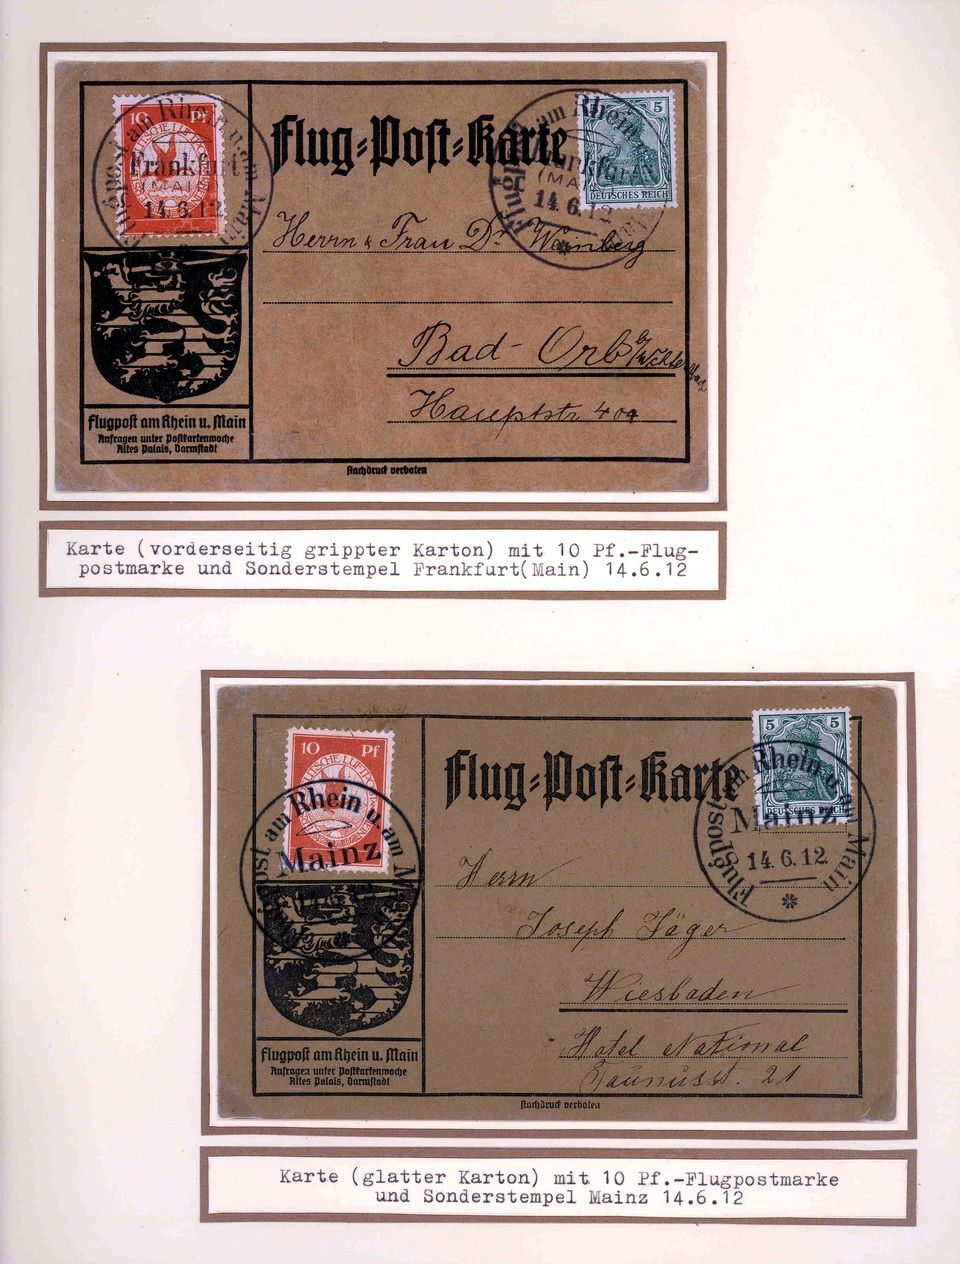 10 Pf
Flugpost am Rhein u. am Main
Frankfurt
(MAIN)
14.6.12
Flug-Post-Karte
5
DEUTSCHES REICH
Flugpost am Rhein u. am Main
Frankfurt
(MAIN)
14.6.12
Herrn & Frau Dr. Weinberg
Bad-Orb
Hauptstr. 40
Flugpost am Rhein u. Main
Anfragen unter Postkartenwoche
Altes Palais, Darmstadt
Nachdruck verboten
Karte (vorderseitig grippter Karton) mit 10 Pf.-Flug-
postmarke und Sonderstempel Frankfurt(Main) 14.6.12
10 Pf
Flugpost am Rhein u. am Main
Mainz
Flug-Post-Karte
5 5
DEUTSCHES REICH
Flugpost am Rhein u. am Main
Mainz
14.6.12
Herrn
Joseph Jäger
Wiesbaden
Hotel National
Taunusst. 21
Flugpost am Rhein u. Main
Anfragen unter Postkartenwoche
Altes Palais, Darmstadt
Nachdruck verboten
Karte (glatter Karton) mit 10 Pf.-Flugpostmarke
und Sonderstempel Mainz 14.6.12